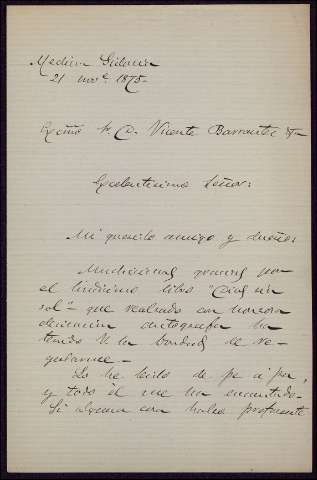 Medina Sidonia
21 nove. 1875-
Excmo Sr D. Vicente Barrantes &a
Excelentisimo Señor:
Mi querido amigo y dueño:
Muchisimas gracias por
el lindisimo libro "Dias sin
sol" - que realzado con honrosa
dedicacion autografa ha
tenido V. la bondad de re-
galarme -
Lo he leido de pe a pa,
y todo él me ha encantado -
Si alguna cosa